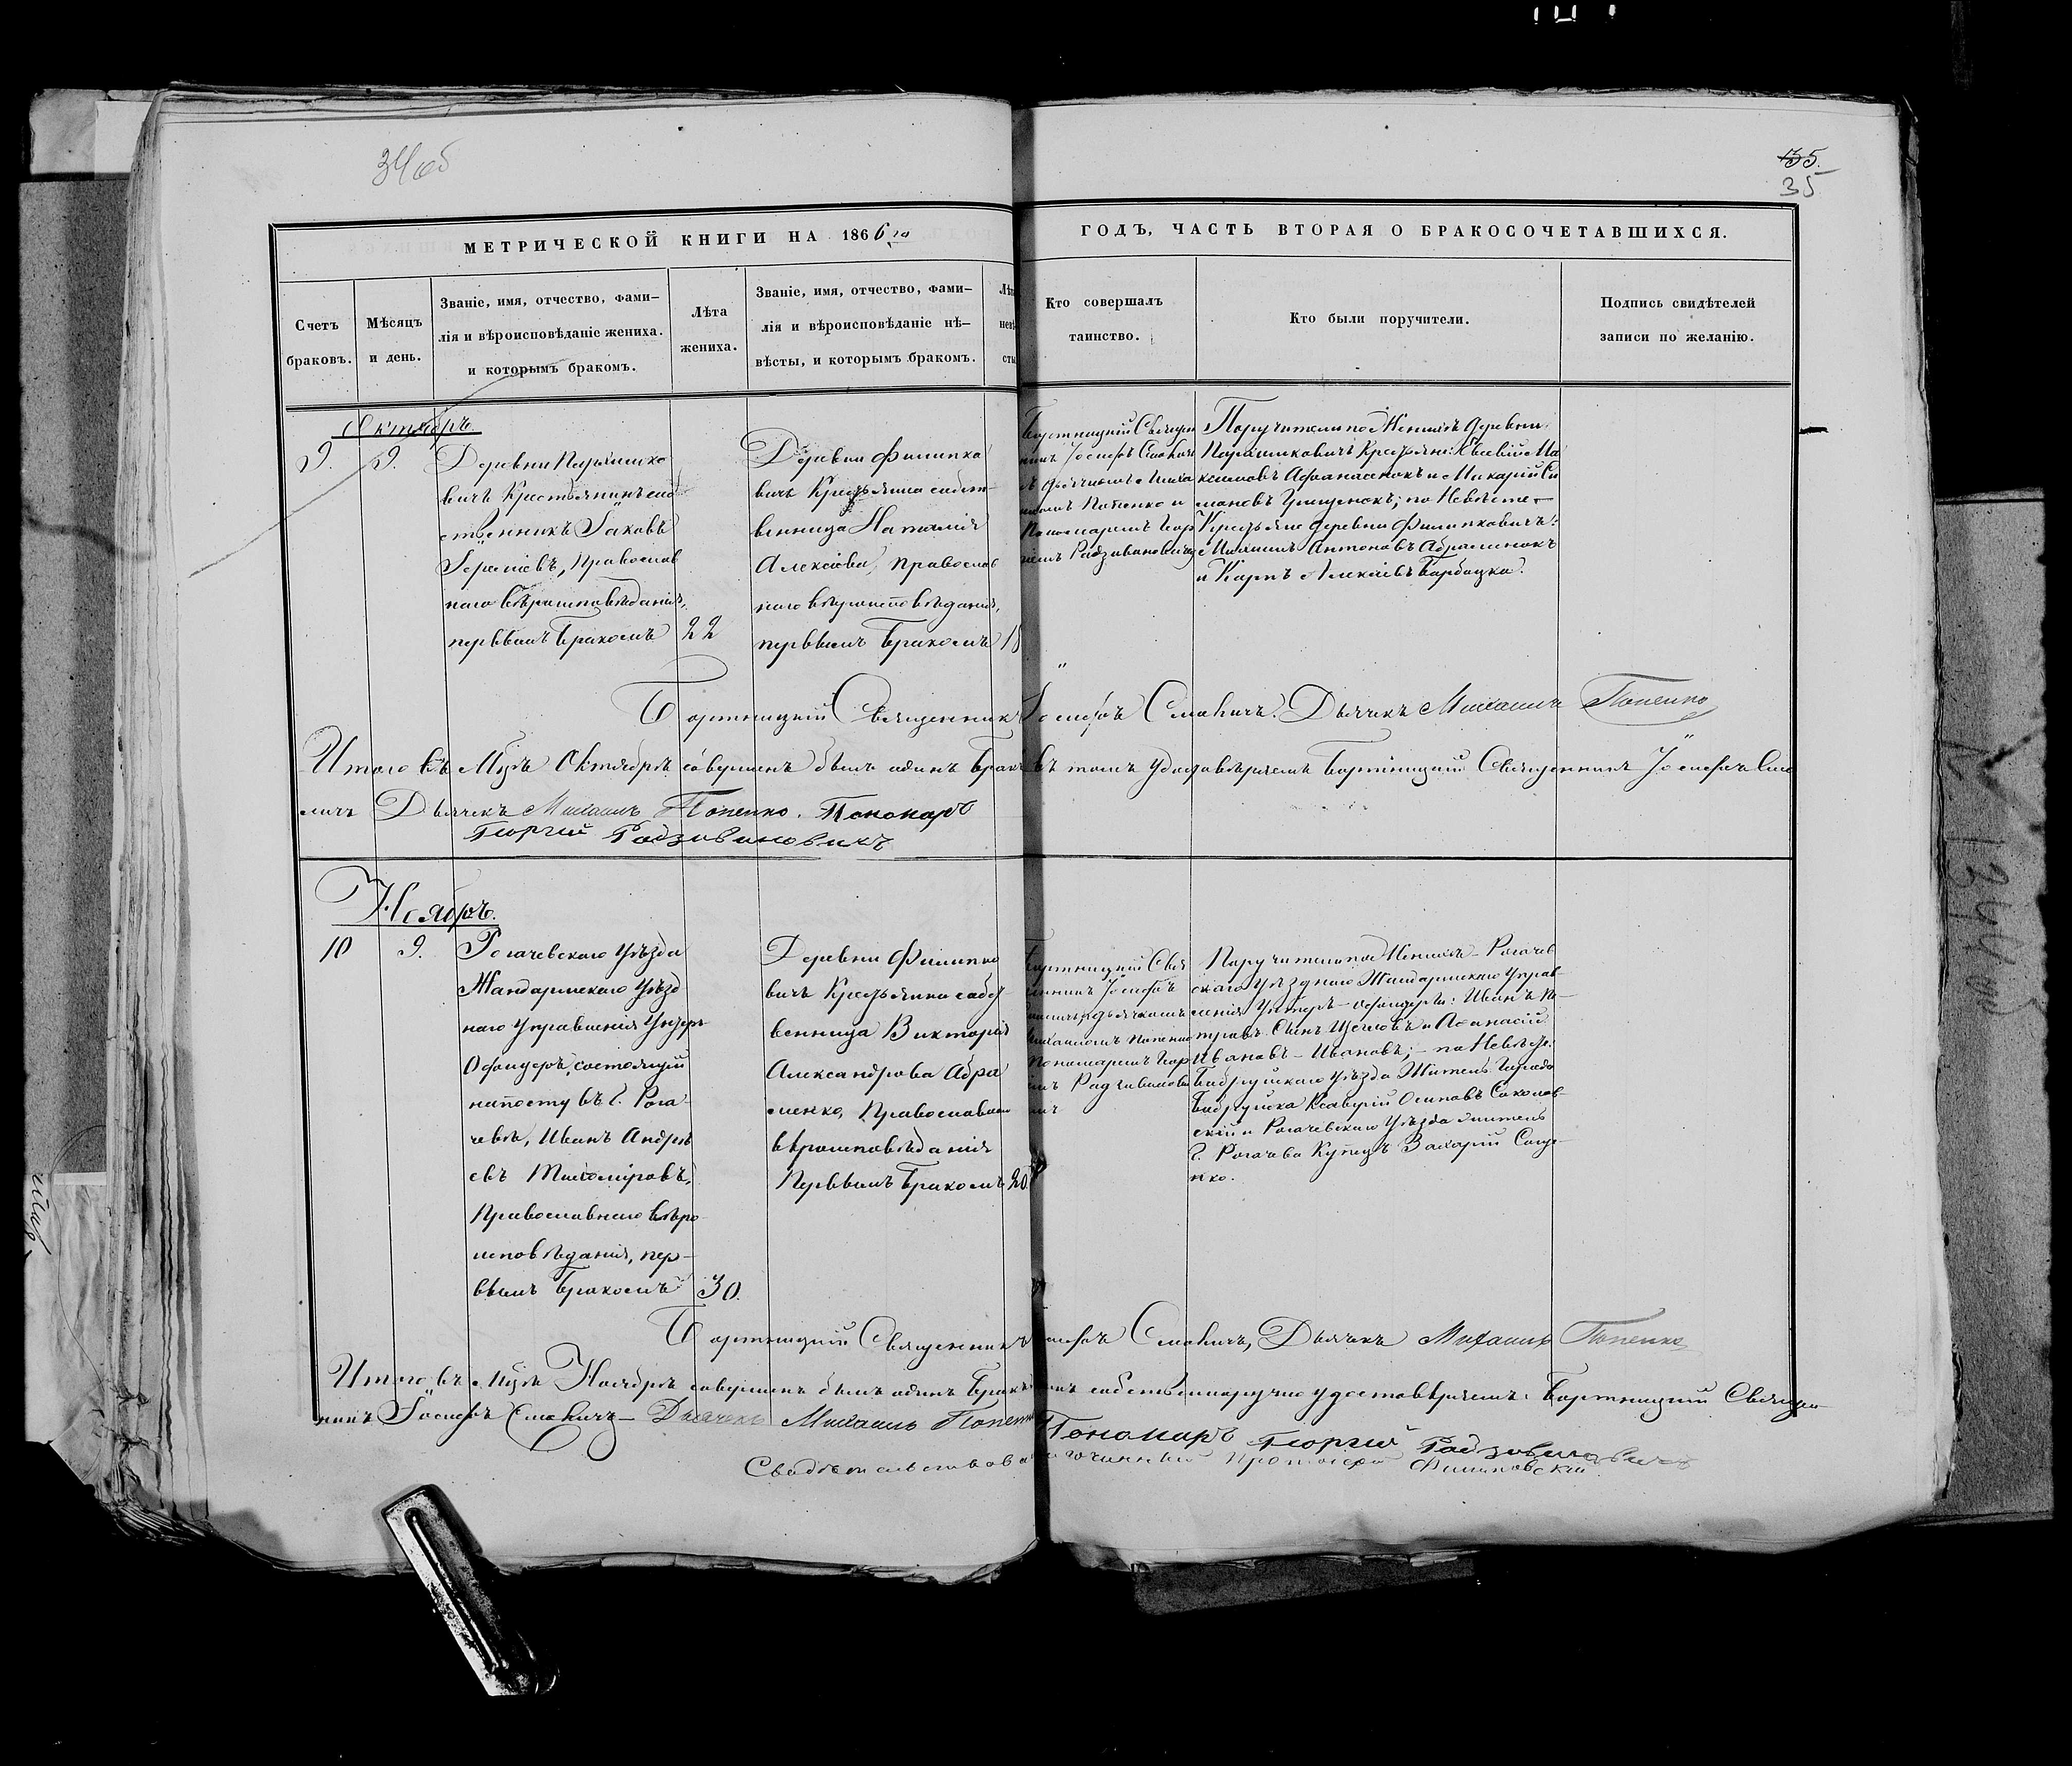 34об
135.
35
МЕТРИЧЕСКОЙ КНИГИ НА 1866 го
ГОДЪ, ЧАСТЬ ВТОРАЯ О БРАКОСОЧЕТАВШИХСЯ.
Счетъ
браковъ.
Мѣсяцъ
и день.
Званіе, имя, отчество, фами-
лія и вѣроисповѣданіе жениха.
и которымъ бракомъ.
Лѣта
жениха.
Званіе, имя, отчество, фами-
лія и вѣроисповѣданіе нѣ-
вѣсты, и которымъ бракомъ.
Лѣт
невѣ
сты
Кто совершалъ
таинство.
Кто были поручители.
Подпись свидѣтелей
записи по желанію.
Октябръ.
9.
9.
Деревни Паришко
вичъ Крестьянинъ соб
ственникъ Іаковъ
православ
наго вѣроисповѣданія,
первымъ бракомъ
22
Деревни Филипко
вичъ Крестьянка собст
венница Наталія
Алексіева, православ
наго вѣроисповѣданія,
первымъ бракомъ
18
Бортницкій Священ
никъ Іосифъ Смолич
съ Дьячкомъ Миха
иломъ Попенко и
Пономаремъ Геор
гіемъ Радзивановичем
Поручители по Женихѣ деревни
Паришковичъ Крестьяне: Евсевій Ма
ксимовъ Афанасенокъ и Макарій Си
моновъ Грищенокъ; по Невѣсте-
Крестьяне деревни Филипковичъ:
Михаилъ Антоновъ Абраменокъ
и Карпъ Алексіевъ Барбацка.
Бортницкій Священникъ Іосифъ Смоличъ. Дьячекъ Михаилъ Попенко
Итого въ Мцѣ Октябрѣ совершенъ былъ одинъ Бракъ въ томъ удостовѣряемъ Бортницкій Священникъ Іосифъ Смо
личъ Дьячекъ Михаилъ Попенко. Пономарь
Георгій Радзивановичъ
Ноябръ.
10
9.
Рогачевскаго Уѣзда
Жандармскаго Уѣзд
наго Управленія Унтеръ
Офицеръ, состоящій
на посту въ г. Рога-
чевѣ, Иванъ Андрѣ
евъ Тихоміровъ,
Православнаго вѣро-
исповѣданія, пер-
вымъ бракомъ
30.
Деревни Филипко
вичъ Крестьянка собст
венница Викторія
Александрова Абра
менко, Православнаго
вѣроисповѣданія
Первымъ бракомъ
20.
Бортницкій Свя
щенникъ Іосифъ
Смоличъ съ Дьячкомъ
Михаиломъ Попенко
Пономаремъ Геор
гіемъ Радзиванови
чемъ
Поручители по Женихѣ - Рогачев
скаго Уѣзднаго Жандармскаго Управ
ленія Унтеръ-офицеры: Иванъ Пе-
тровъ Сынъ Щегловъ и Афанасій
Ивановъ - Ивановъ; - по Невѣсте:
Бобруйскаго Уѣзда Житель Города
Бобруйска Ксаверій Осиповъ Соколов-
скій и Рогачевскаго Уѣзда житель
г. Рогачева Купецъ Захарій Сопе-
нко.
Бортницкій Священникъ Іосифъ Смоличъ, Дьячекъ Михаилъ Попенко
Итого въ Мцѣ Ноябрѣ совершенъ былъ одинъ Бракъ собственноручно удостовѣряемъ: Бортницкій Священ
никъ Іосифъ Смоличъ - Дьячекъ Михаилъ Попенко Пономарь Георгій Радзивановичъ
Свидѣтельствовалъ Благочинный Протоіерей Филиповскій